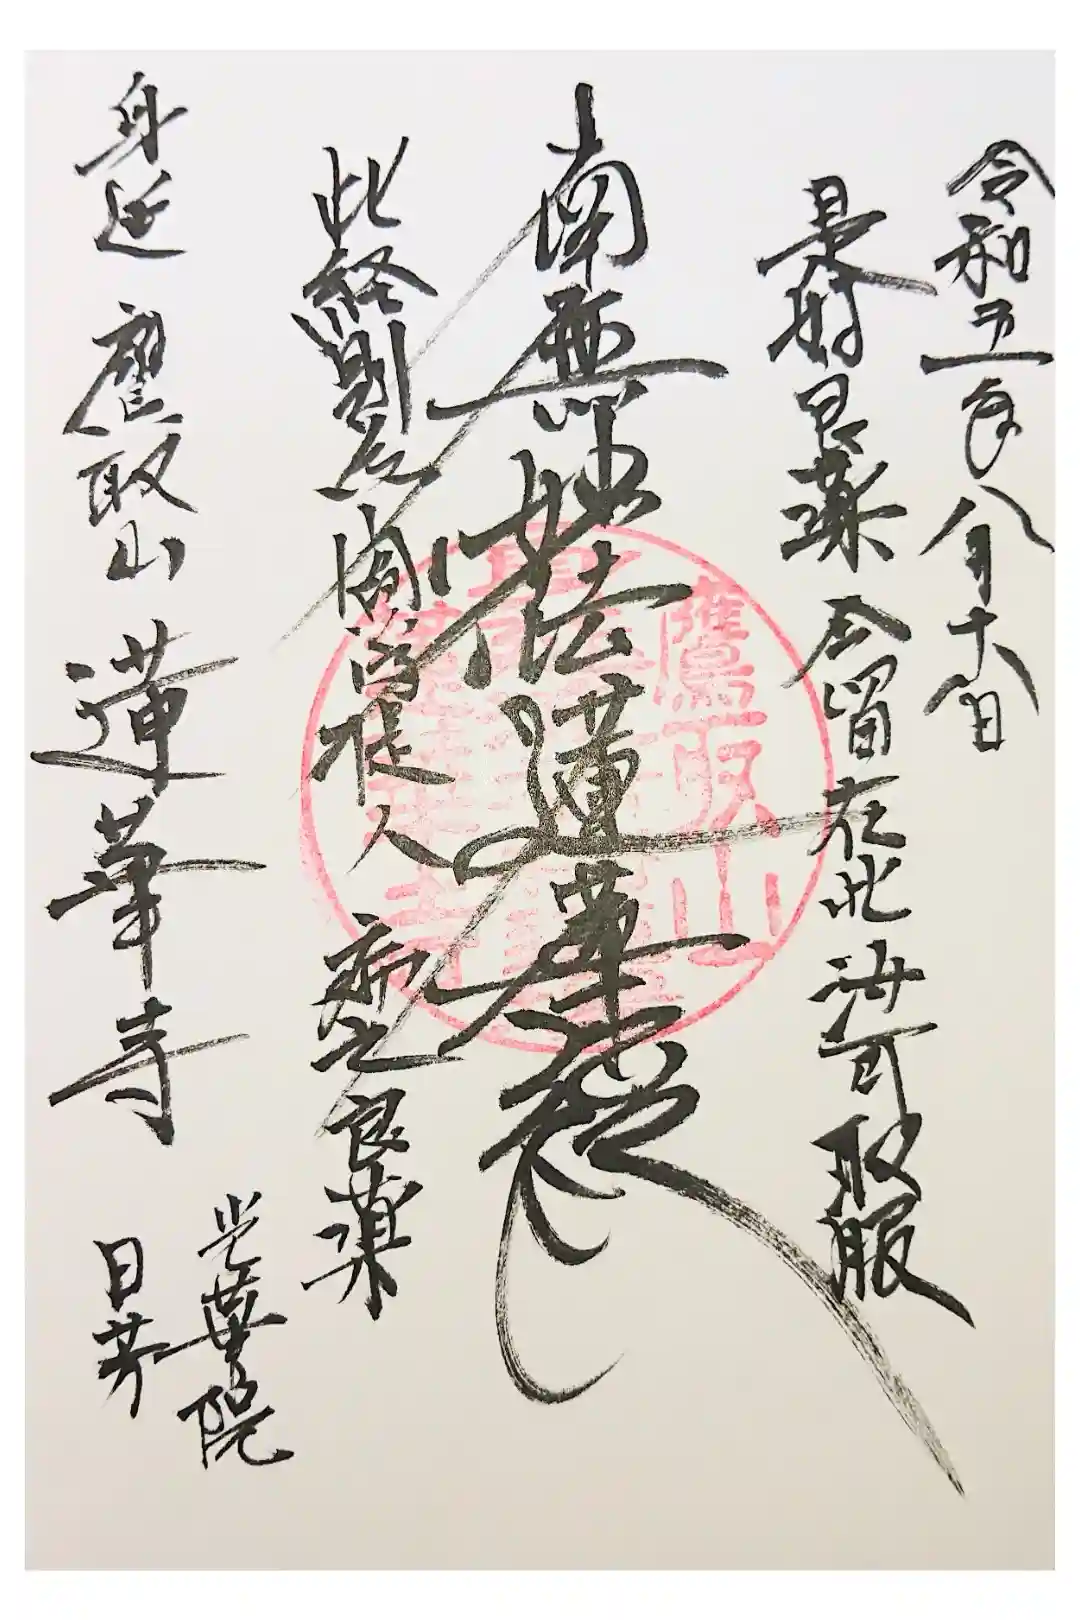 令和五年八月十六日
是好良薬 今留在此 汝可取服
南無妙法蓮華経
此経則為 閻浮提人 病之良薬
身延 鷹取山 蓮華寺
葉院
日
鷹取山